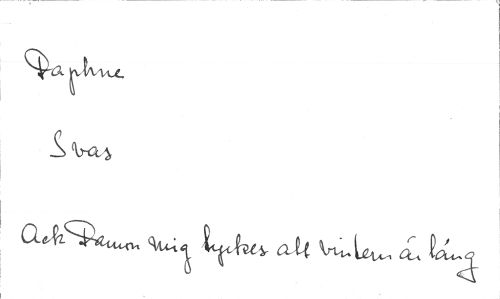 Daphne
Svas
Ack Damon mig tyckes att vintern är lång